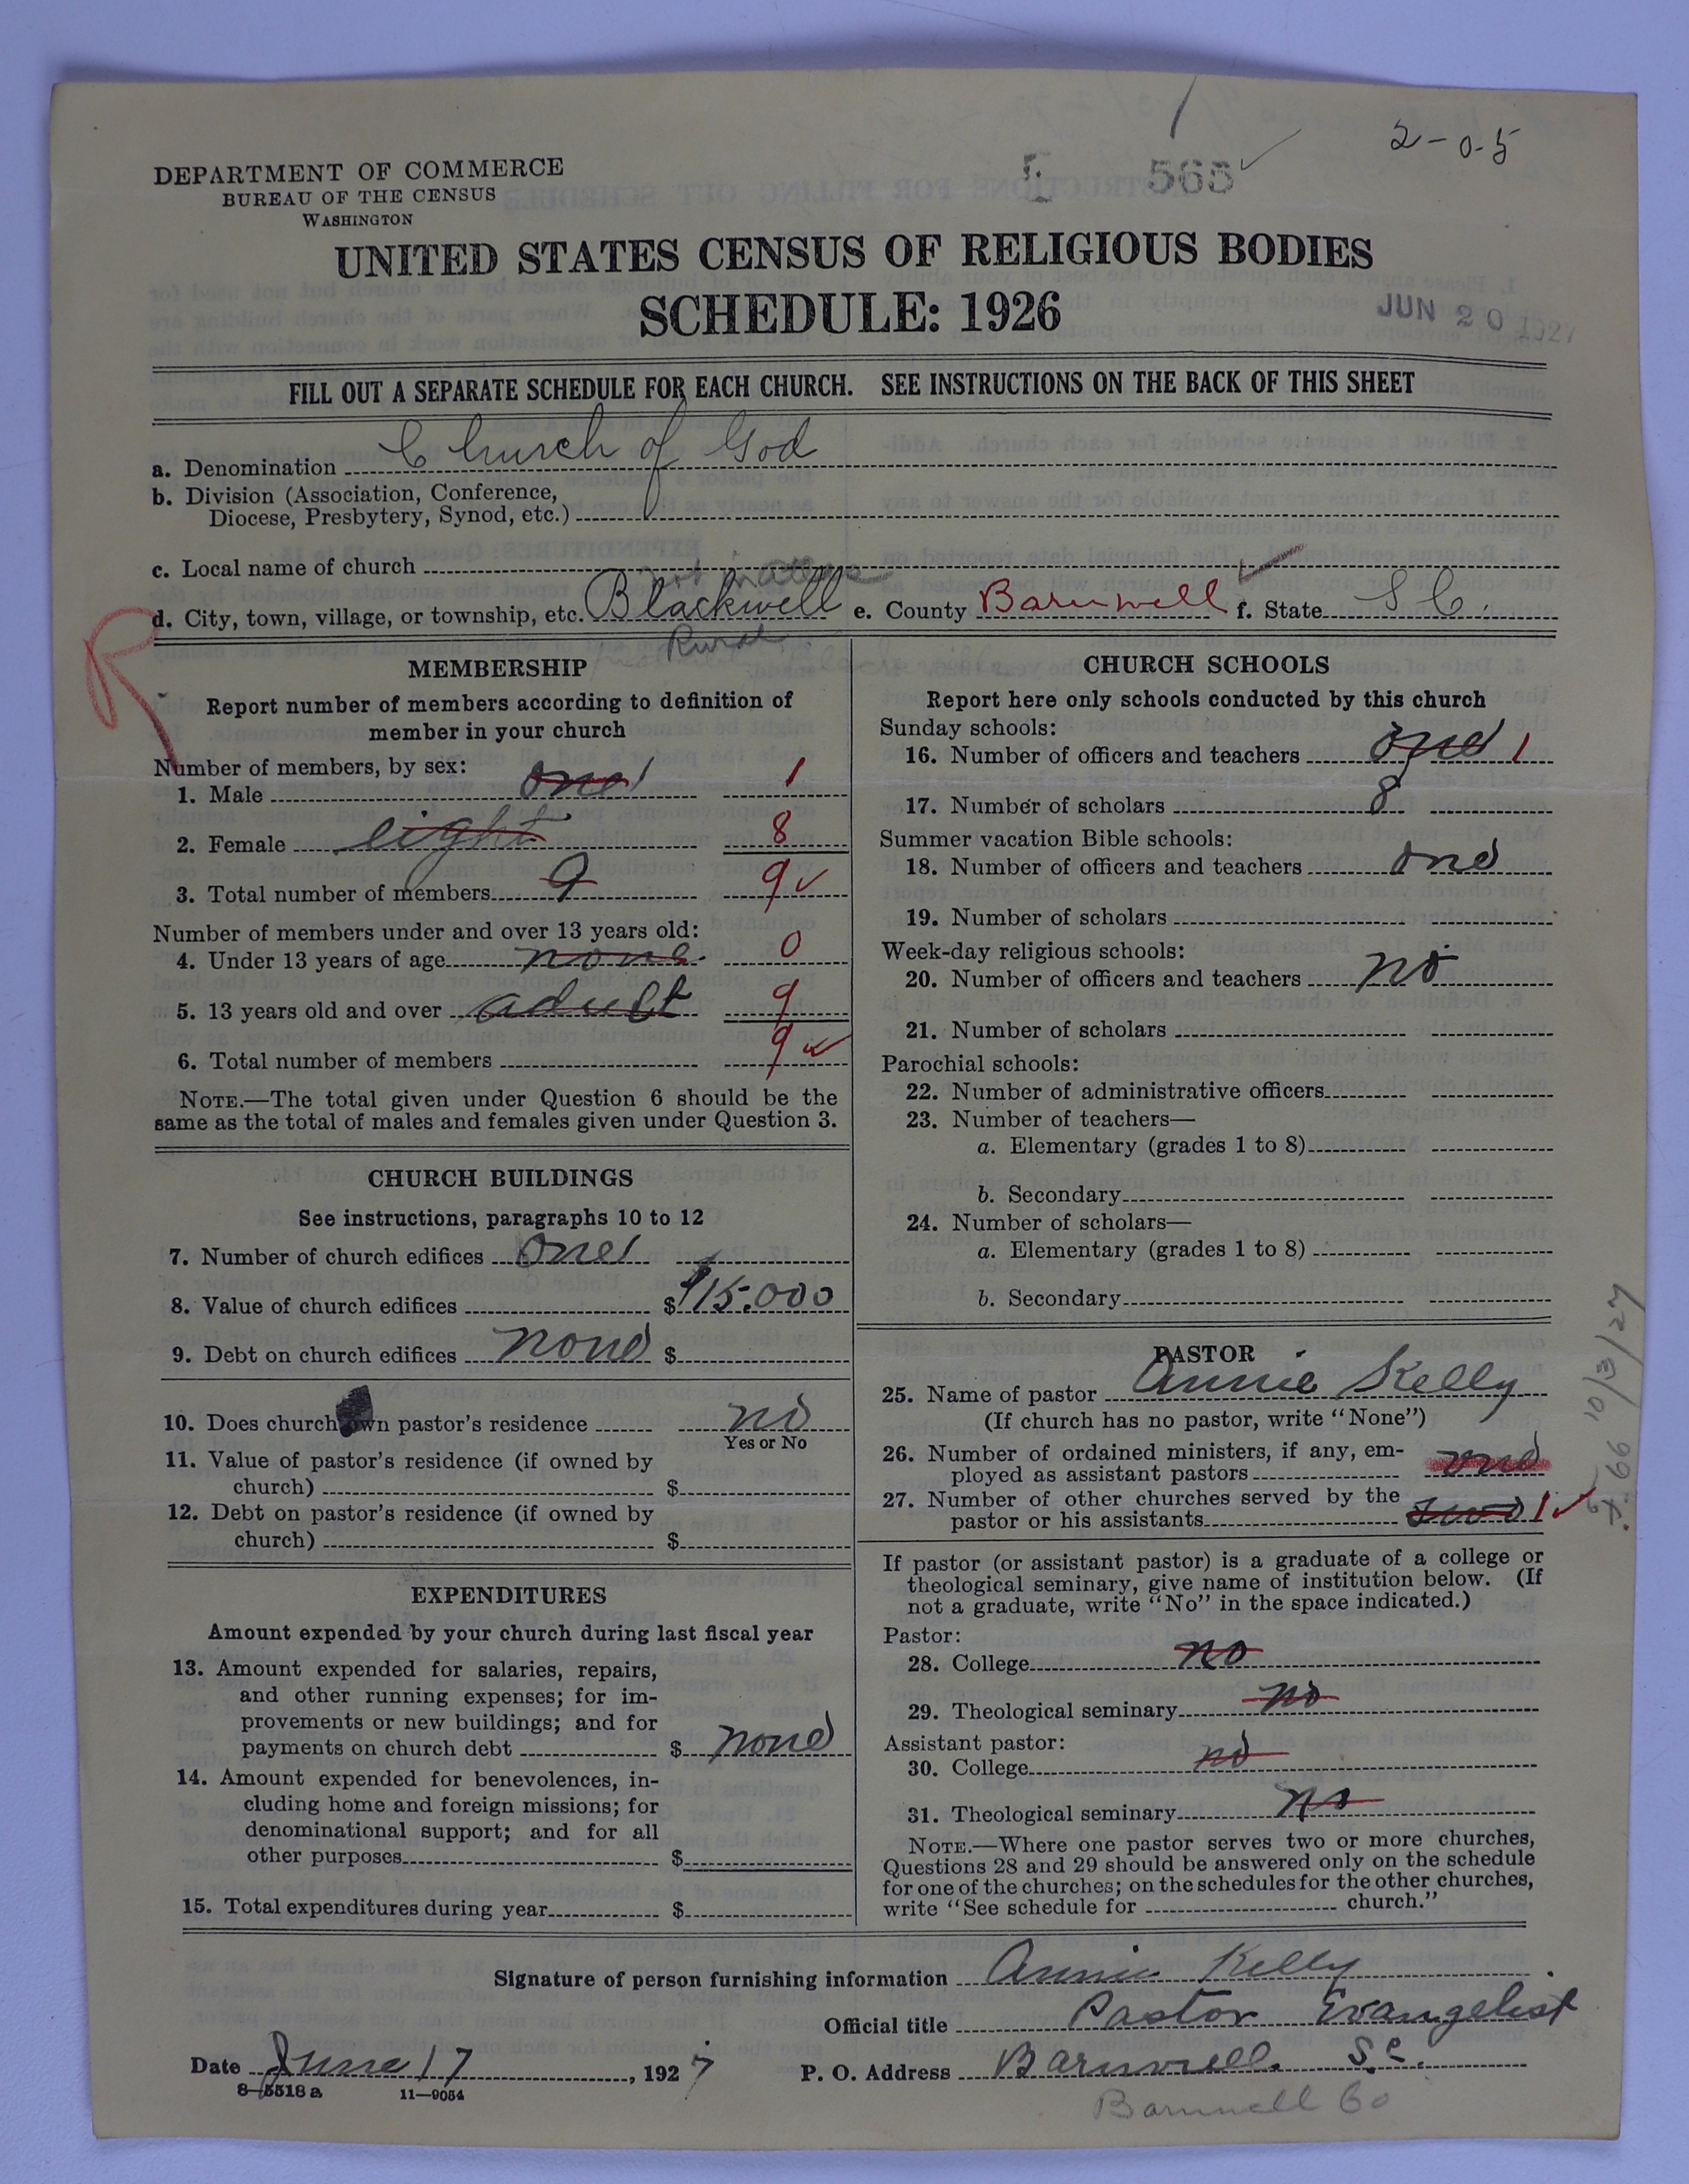 2-0-5
565
DEPARTMENT OF COMMERCE
BUREAU OF THE CENSUS
WASHINGTON
UNITED STATES CENSUS OF RELIGIOUS BODIES
SCHEDULE: 1926
JUN 20 1927
FILL OUT A SEPARATE SCHEDULE FOR EACH CHURCH. SEE INSTRUCTIONS ON THE BACK OF THIS SHEET
a. Denomination Church of God
b. Division (Association, Conference,
Diocese, Presbytery, Synod, etc.)
c. Local name of church
d. City, town, village, or township, etc. Blackwell e. County Barnwell f. State S C.
Rural
R
MEMBERSHIP
Report number of members according to definition of
member in your church
Number of members, by sex:
1. Male one 1 1
2. Female eight 8
3. Total number of members 9 9
Number of members under and over 13 years old:
4. Under 13 years of age none 0
5. 13 years old and over adult 9
6. Total number of members 9
NOTE.—The total given under Question 6 should be the
same as the total of males and females given under Question 3.
CHURCH BUILDINGS
See instructions, paragraphs 10 to 12
7. Number of church edifices one 1
8. Value of church edifices $ $15.000
9. Debt on church edifices none $
10. Does church own pastor's residence no
Yes or No
11. Value of pastor's residence (if owned by
church) $
12. Debt on pastor's residence (if owned by
church) $
EXPENDITURES
Amount expended by your church during last fiscal year
13. Amount expended for salaries, repairs,
and other running expenses; for im-
provements or new buildings; and for
payments on church debt $ none
14. Amount expended for benevolences, in-
cluding home and foreign missions; for
denominational support; and for all
other purposes $
15. Total expenditures during year $
CHURCH SCHOOLS
Report here only schools conducted by this church
Sunday schools:
16. Number of officers and teachers one 1
17. Number of scholars 8
Summer vacation Bible schools:
18. Number of officers and teachers one
19. Number of scholars
Week-day religious schools:
20. Number of officers and teachers no
21. Number of scholars
Parochial schools:
22. Number of administrative officers
23. Number of teachers—
a. Elementary (grades 1 to 8)
b. Secondary
24. Number of scholars—
a. Elementary (grades 1 to 8)
b. Secondary
PASTOR
25. Name of pastor Annie Kelly
(If church has no pastor, write "None")
26. Number of ordained ministers, if any, em-
ployed as assistant pastors one
27. Number of other churches served by the
pastor or his assistants 1
If pastor (or assistant pastor) is a graduate of a college or
theological seminary, give name of institution below. (If
not a graduate, write "No" in the space indicated.)
Pastor:
28. College no
29. Theological seminary no
Assistant pastor:
30. College no
31. Theological seminary no
NOTE.—Where one pastor serves two or more churches,
Questions 28 and 29 should be answered only on the schedule
for one of the churches; on the schedules for the other churches,
write "See schedule for church."
10/3/27
Signature of person furnishing information Annie Kelly
Official title Pastor Evangelist
Date June 17, 1927 P. O. Address Barnwell. S.C.
8—5518 a 11—9054
Barnwell Co